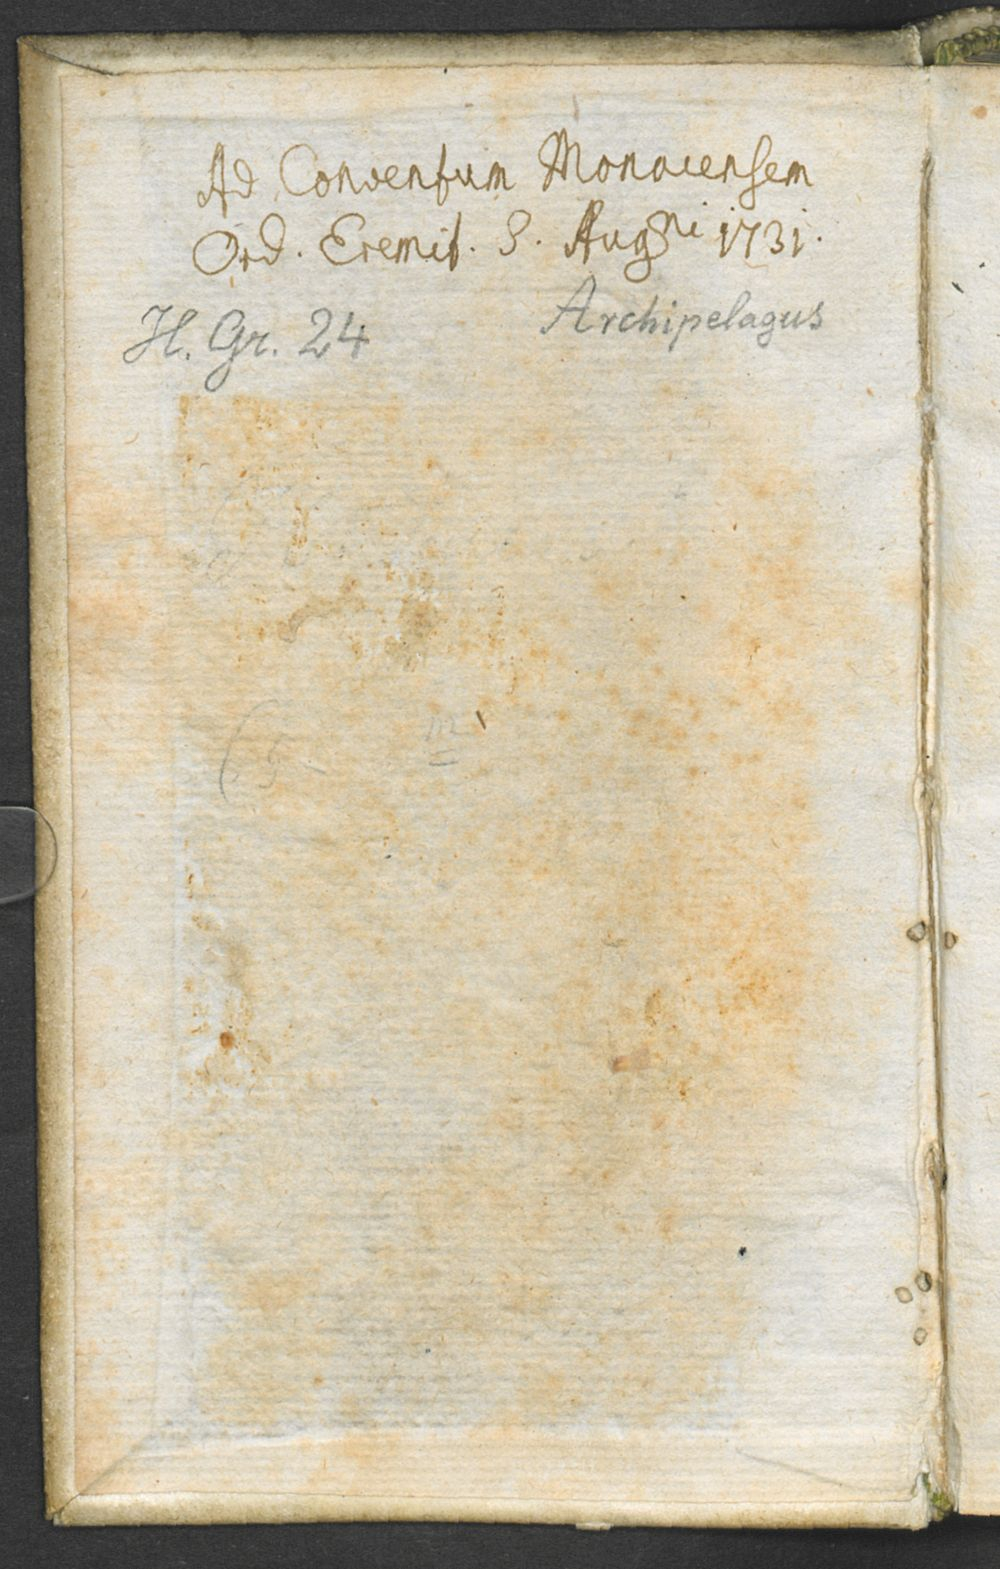 Ad Conventum Monacensem
Ord. Eremit. S. Aug^ni 1731.
H. Gr. 24 Archipelagus